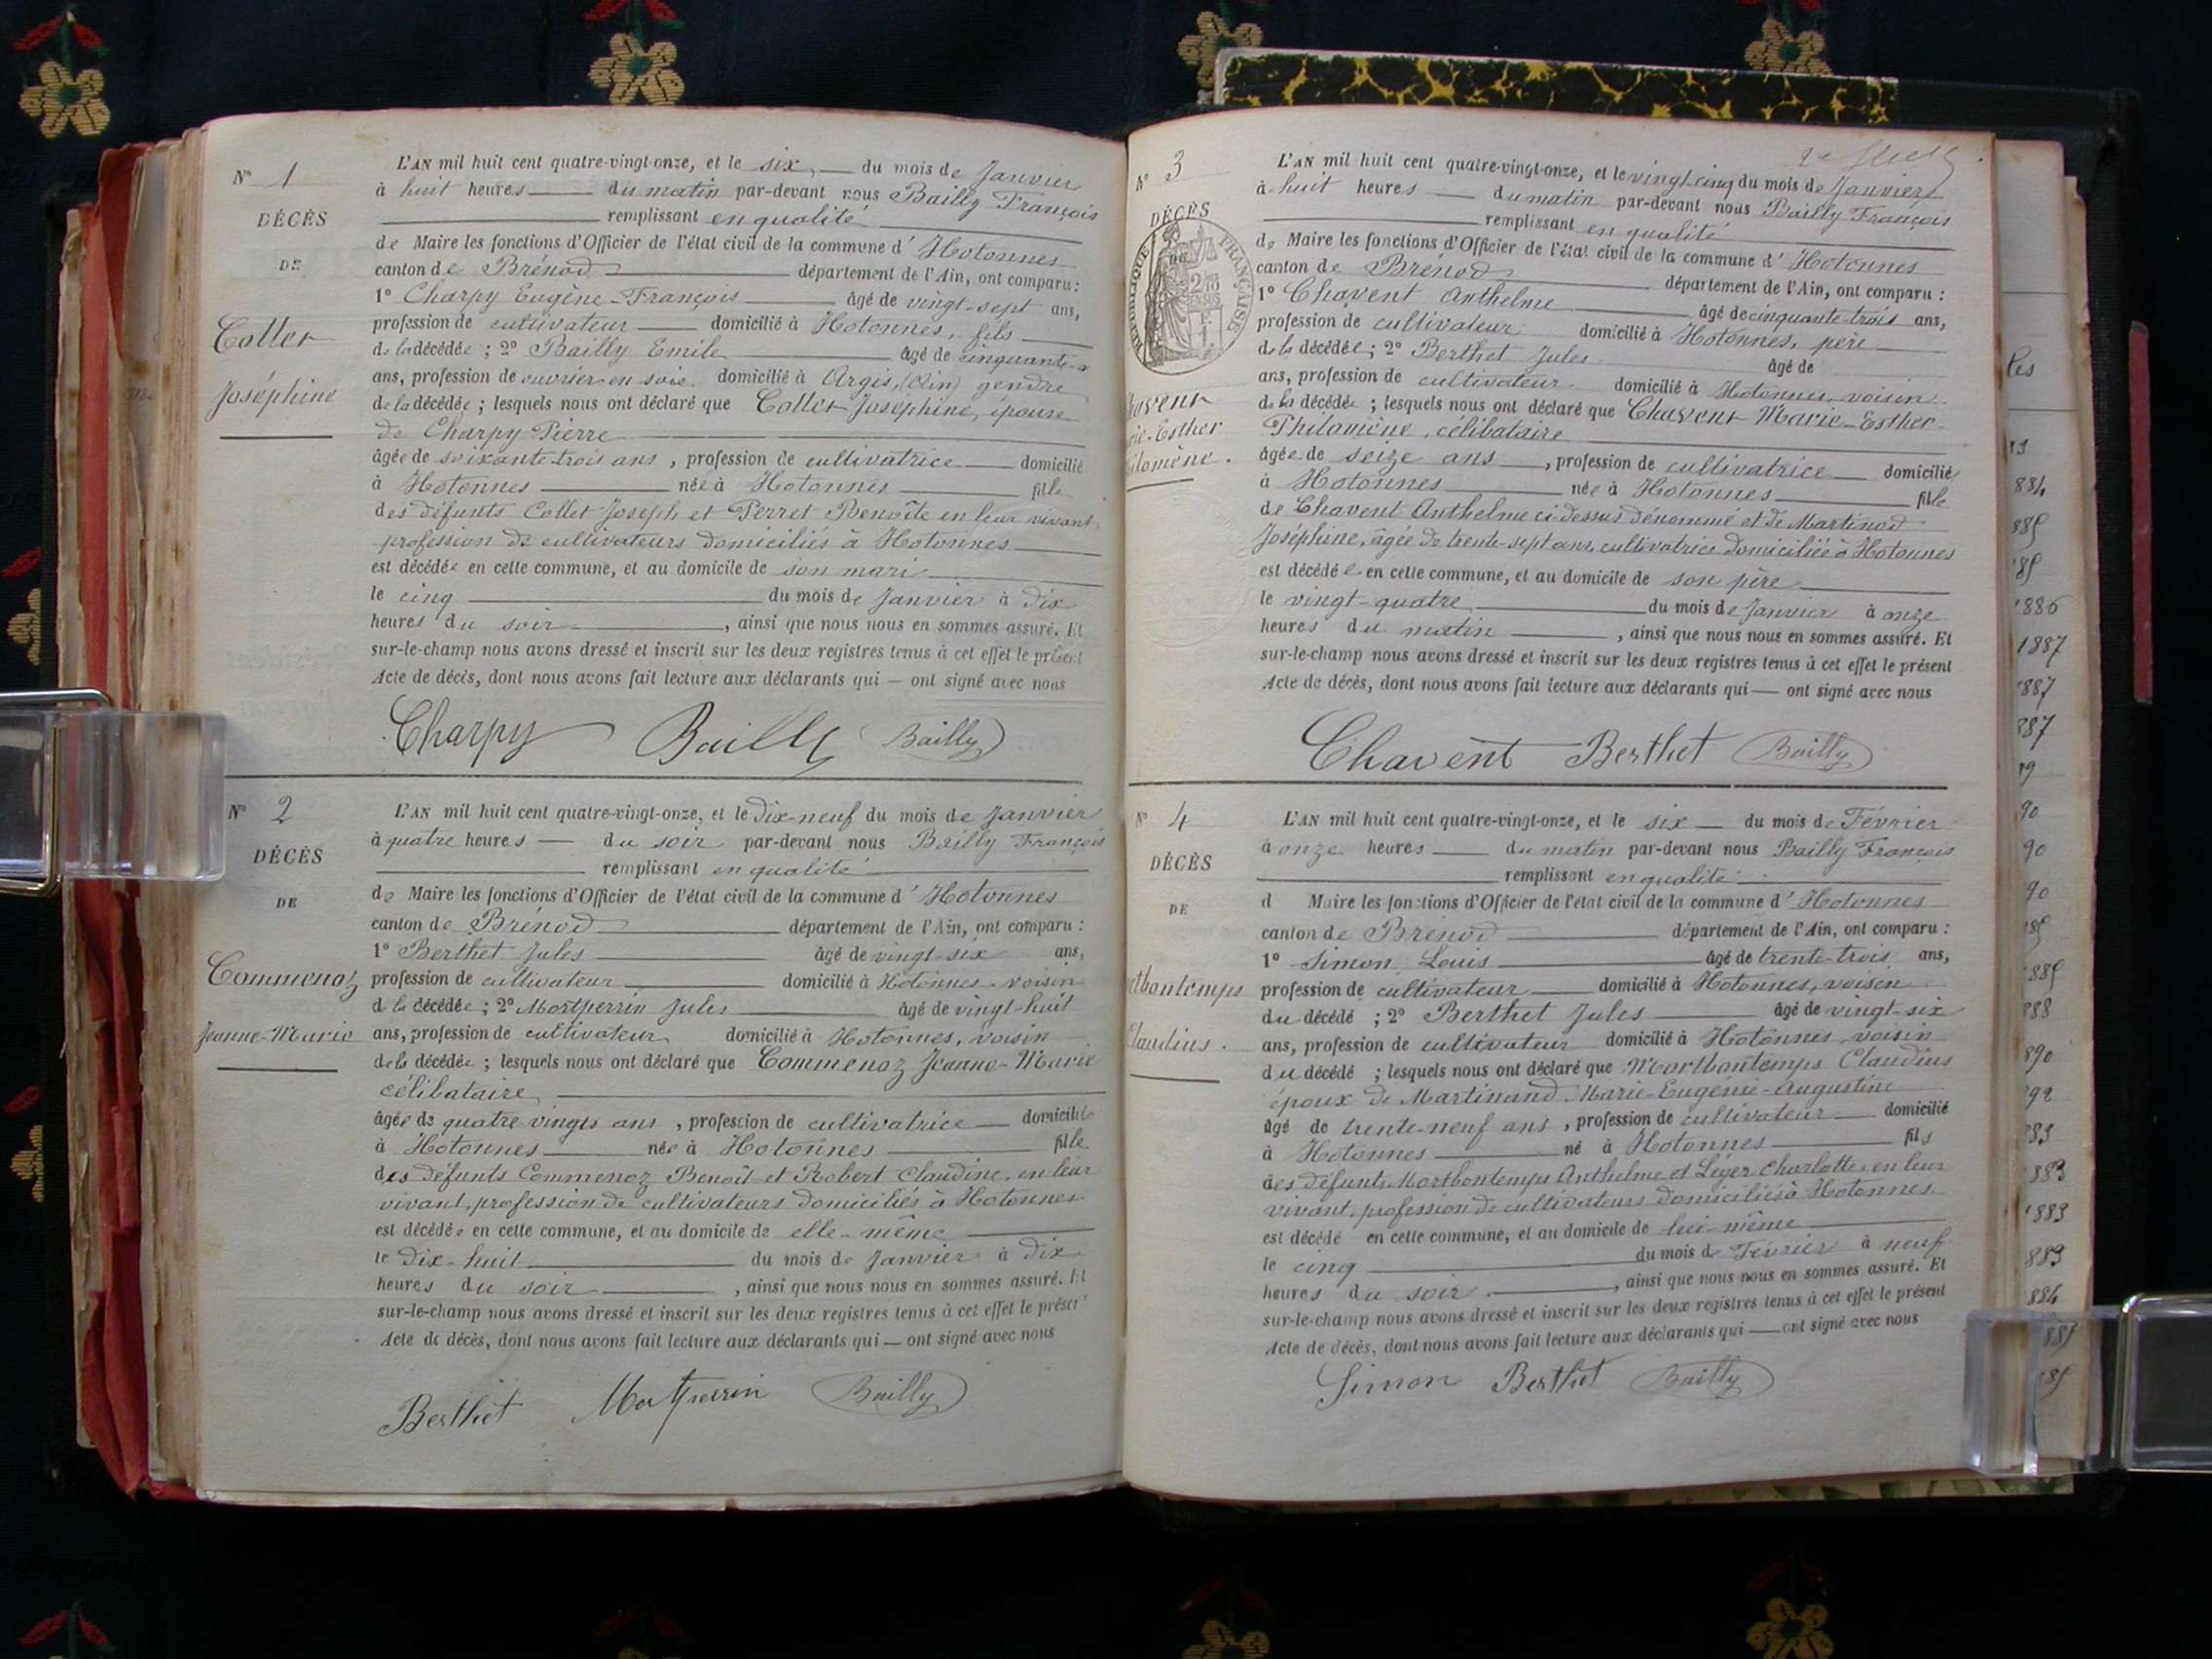 N° 1
DÉCÈS
DE
Collet
Joséphine
L'AN mil huit cent quatre-vingt-onze, et le six du mois de Janvier
à huit heures du matin par-devant nous Bailly François
remplissant en qualité
de Maire les fonctions d'Officier de l'état civil de la commune d' Hotonnes
canton de Brénod département de l'Ain, ont comparu :
1° Charpy Eugène-François âgé de vingt-sept ans,
profession de cultivateur domicilié à Hotonnes, fils
de la décédée ; 2° Bailly Emile âgé de cinquante
ans, profession de ouvrier en soie domicilié à Argis, (Ain) gendre
de la décédée ; lesquels nous ont déclaré que Collet Joséphine, épouse
de Charpy Pierre
âgée de soixante-trois ans, profession de cultivatrice domicilié
à Hotonnes née à Hotonnes fille
des défunts Collet Joseph et Perret Benoîte en leur vivant
profession de cultivateurs domiciliés à Hotonnes
est décédée en cette commune, et au domicile de son mari
le cinq du mois de Janvier à dix
heures du soir, ainsi que nous nous en sommes assuré. Et
sur-le-champ nous avons dressé et inscrit sur les deux registres tenus à cet effet le présent
Acte de décès, dont nous avons fait lecture aux déclarants qui — ont signé avec nous
Charpy Bailly Bailly
N° 2
DÉCÈS
DE
Commenoz
Jeanne-Marie
L'AN mil huit cent quatre-vingt-onze, et le dix-neuf du mois de Janvier
à quatre heures du soir par-devant nous Bailly François
remplissant en qualité
de Maire les fonctions d'Officier de l'état civil de la commune d' Hotonnes
canton de Brénod département de l'Ain, ont comparu :
1° Berthet Jules âgé de vingt-six ans,
profession de cultivateur domicilié à Hotonnes voisin
d la décédée ; 2° Mortperrin Jules âgé de vingt-huit
ans, profession de cultivateur domicilié à Hotonnes, voisin
de la décédée ; lesquels nous ont déclaré que Commenoz Jeanne-Marie
célibataire
âgée de quatre vingts ans, profession de cultivatrice domicilié
à Hotonnes née à Hotonnes fille
des défunts Commenoz Benoît et Robert Claudine, en leur
vivant, profession de cultivateurs domiciliés à Hotonnes
est décédée en cette commune, et au domicile de elle-même
le dix-huit du mois de Janvier à dix
heures du soir, ainsi que nous nous en sommes assuré. Et
sur-le-champ nous avons dressé et inscrit sur les deux registres tenus à cet effet le présent
Acte de décès, dont nous avons fait lecture aux déclarants qui — ont signé avec nous
Berthet Mortperrin Bailly
N° 3
DÉCÈS
DE
RÉPUBLIQUE FRANÇAISE
Esther
L'AN mil huit cent quatre-vingt-onze, et le vingt-cinq du mois de Janvier
à huit heures du matin par-devant nous Bailly François
remplissant en qualité
de Maire les fonctions d'Officier de l'état civil de la commune d' Hotonnes
canton de Brénod département de l'Ain, ont comparu :
1° Chavent Anthelme âgé de cinquante-trois ans,
profession de cultivateur domicilié à Hotonnes, père
de la décédée ; 2° Berthet Jules âgé de
ans, profession de cultivateur domicilié à Hotonnes, voisin
de la décédée ; lesquels nous ont déclaré que Chavent Marie-Esther-
Philomène, célibataire
âgée de seize ans, profession de cultivatrice domicilié
à Hotonnes née à Hotonnes fille
de Chavent Anthelme ci-dessus dénommé et de Martinod
Joséphine, âgée de trente-sept ans, cultivatrice domiciliée à Hotonnes
est décédée en cette commune, et au domicile de son père
le vingt-quatre du mois de Janvier à onze
heures du matin, ainsi que nous nous en sommes assuré. Et
sur-le-champ nous avons dressé et inscrit sur les deux registres tenus à cet effet le présent
Acte de décès, dont nous avons fait lecture aux déclarants qui — ont signé avec nous
Chavent Berthet Bailly
N° 4
DÉCÈS
DE
Claudius.
L'AN mil huit cent quatre-vingt-onze, et le six du mois de Février
à onze heures du matin par-devant nous Bailly François
remplissant en qualité
d Maire les fonctions d'Officier de l'état civil de la commune d' Hotonnes
canton de Brénod département de l'Ain, ont comparu :
1° Simon Louis âgé de trente-trois ans,
profession de cultivateur domicilié à Hotonnes, voisin
du décédé ; 2° Berthet Jules âgé de vingt-six
ans, profession de cultivateur domicilié à Hotonnes voisin
du décédé ; lesquels nous ont déclaré que Mortbontemps Claudius
époux de Martinand Marie-Eugénie-Augustine
âgé de trente-neuf ans, profession de cultivateur domicilié
à Hotonnes né à Hotonnes fils
des défunts Mortbontemps Anthelme et Léger Charlotte, en leur
vivant, profession de cultivateurs domiciliés à Hotonnes
est décédé en cette commune, et au domicile de lui-même
le cinq du mois de Février à neuf
heures du soir, ainsi que nous nous en sommes assuré. Et
sur-le-champ nous avons dressé et inscrit sur les deux registres tenus à cet effet le présent
Acte de décès, dont nous avons fait lecture aux déclarants qui — ont signé avec nous
Simon Berthet Bailly
les
1886
1887